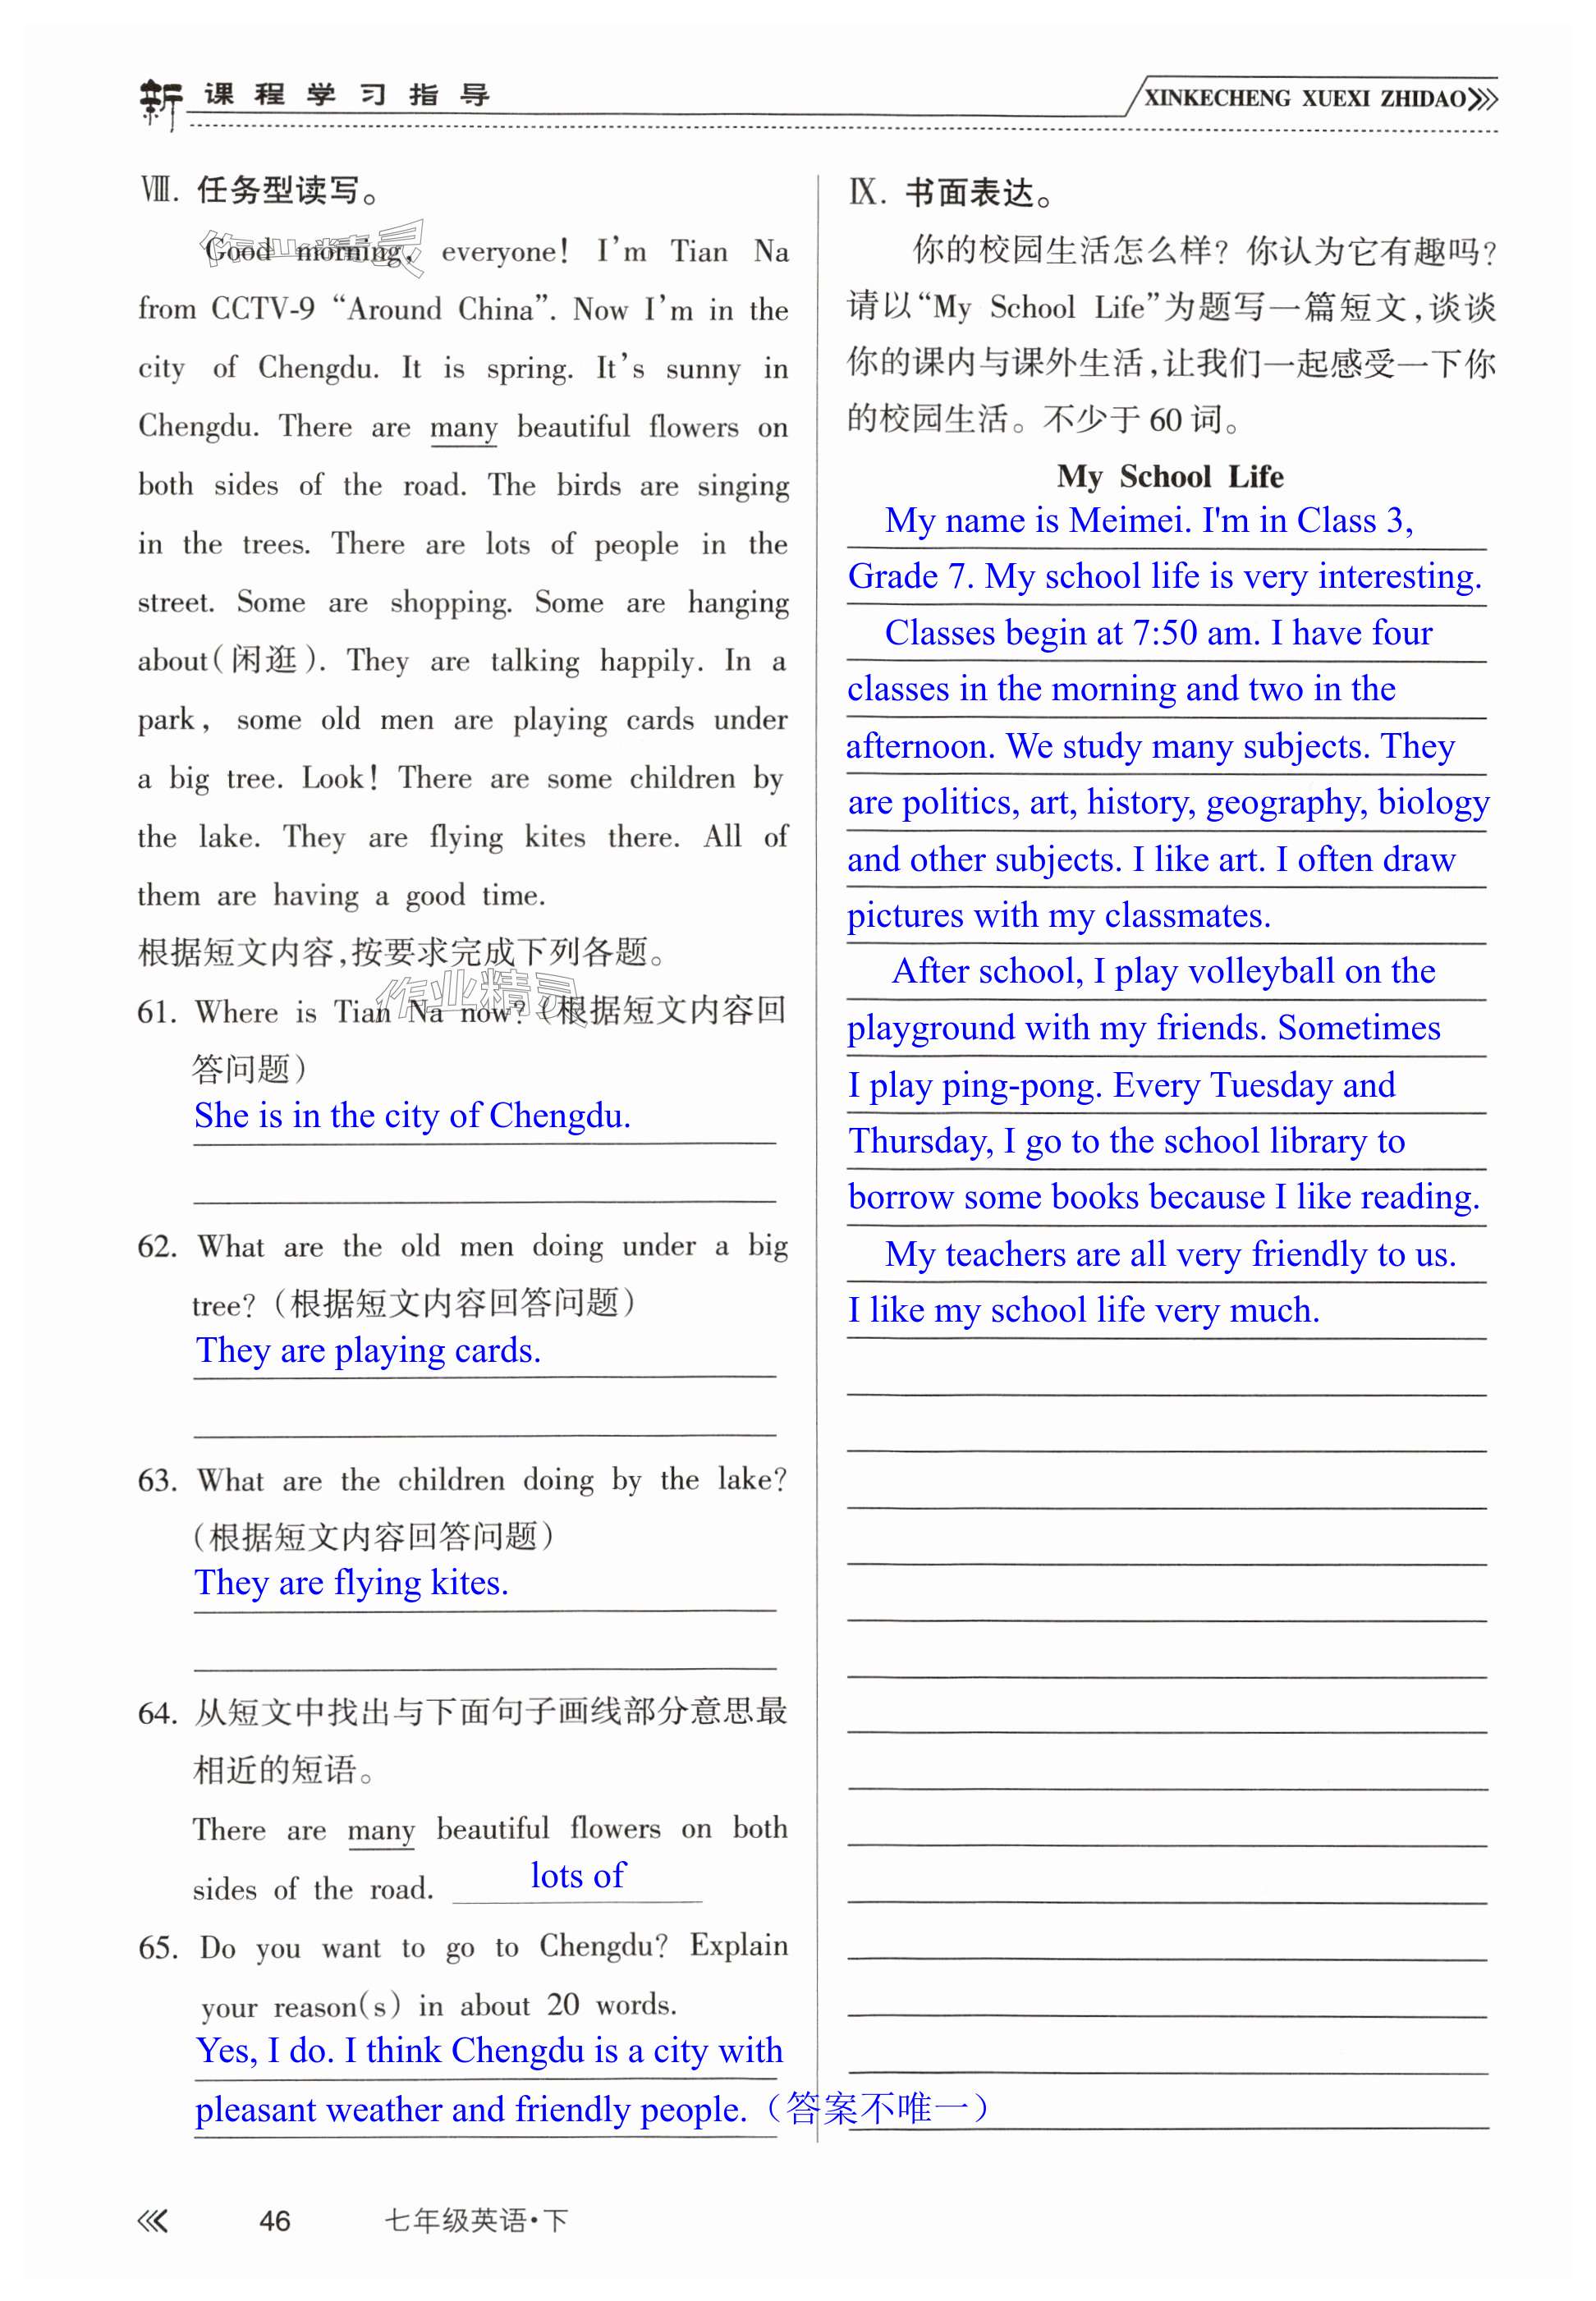 新 课 程 学 习 指 导
XINKECHENG XUEXI ZHIDAO
Ⅷ. 任务型读写。
Good morning, everyone! I'm Tian Na
from CCTV-9 “Around China”. Now I'm in the
city of Chengdu. It is spring. It's sunny in
Chengdu. There are many beautiful flowers on
both sides of the road. The birds are singing
in the trees. There are lots of people in the
street. Some are shopping. Some are hanging
about(闲逛). They are talking happily. In a
park, some old men are playing cards under
a big tree. Look! There are some children by
the lake. They are flying kites there. All of
them are having a good time.
根据短文内容,按要求完成下列各题。
作业精灵
作业精灵
61. Where is Tian Na now? (根据短文内容回
答问题)
She is in the city of Chengdu.
62. What are the old men doing under a big
tree? (根据短文内容回答问题)
They are playing cards.
63. What are the children doing by the lake?
(根据短文内容回答问题)
They are flying kites.
64. 从短文中找出与下面句子画线部分意思最
相近的短语。
There are many beautiful flowers on both
sides of the road. lots of
65. Do you want to go to Chengdu? Explain
your reason(s) in about 20 words.
Yes, I do. I think Chengdu is a city with
pleasant weather and friendly people.（答案不唯一）
Ⅸ. 书面表达。
你的校园生活怎么样? 你认为它有趣吗?
请以“My School Life”为题写一篇短文,谈谈
你的课内与课外生活,让我们一起感受一下你
的校园生活。不少于 60 词。
My School Life
My name is Meimei. I'm in Class 3,
Grade 7. My school life is very interesting.
Classes begin at 7:50 am. I have four
classes in the morning and two in the
afternoon. We study many subjects. They
are politics, art, history, geography, biology
and other subjects. I like art. I often draw
pictures with my classmates.
After school, I play volleyball on the
playground with my friends. Sometimes
I play ping-pong. Every Tuesday and
Thursday, I go to the school library to
borrow some books because I like reading.
My teachers are all very friendly to us.
I like my school life very much.
46 七年级英语·下